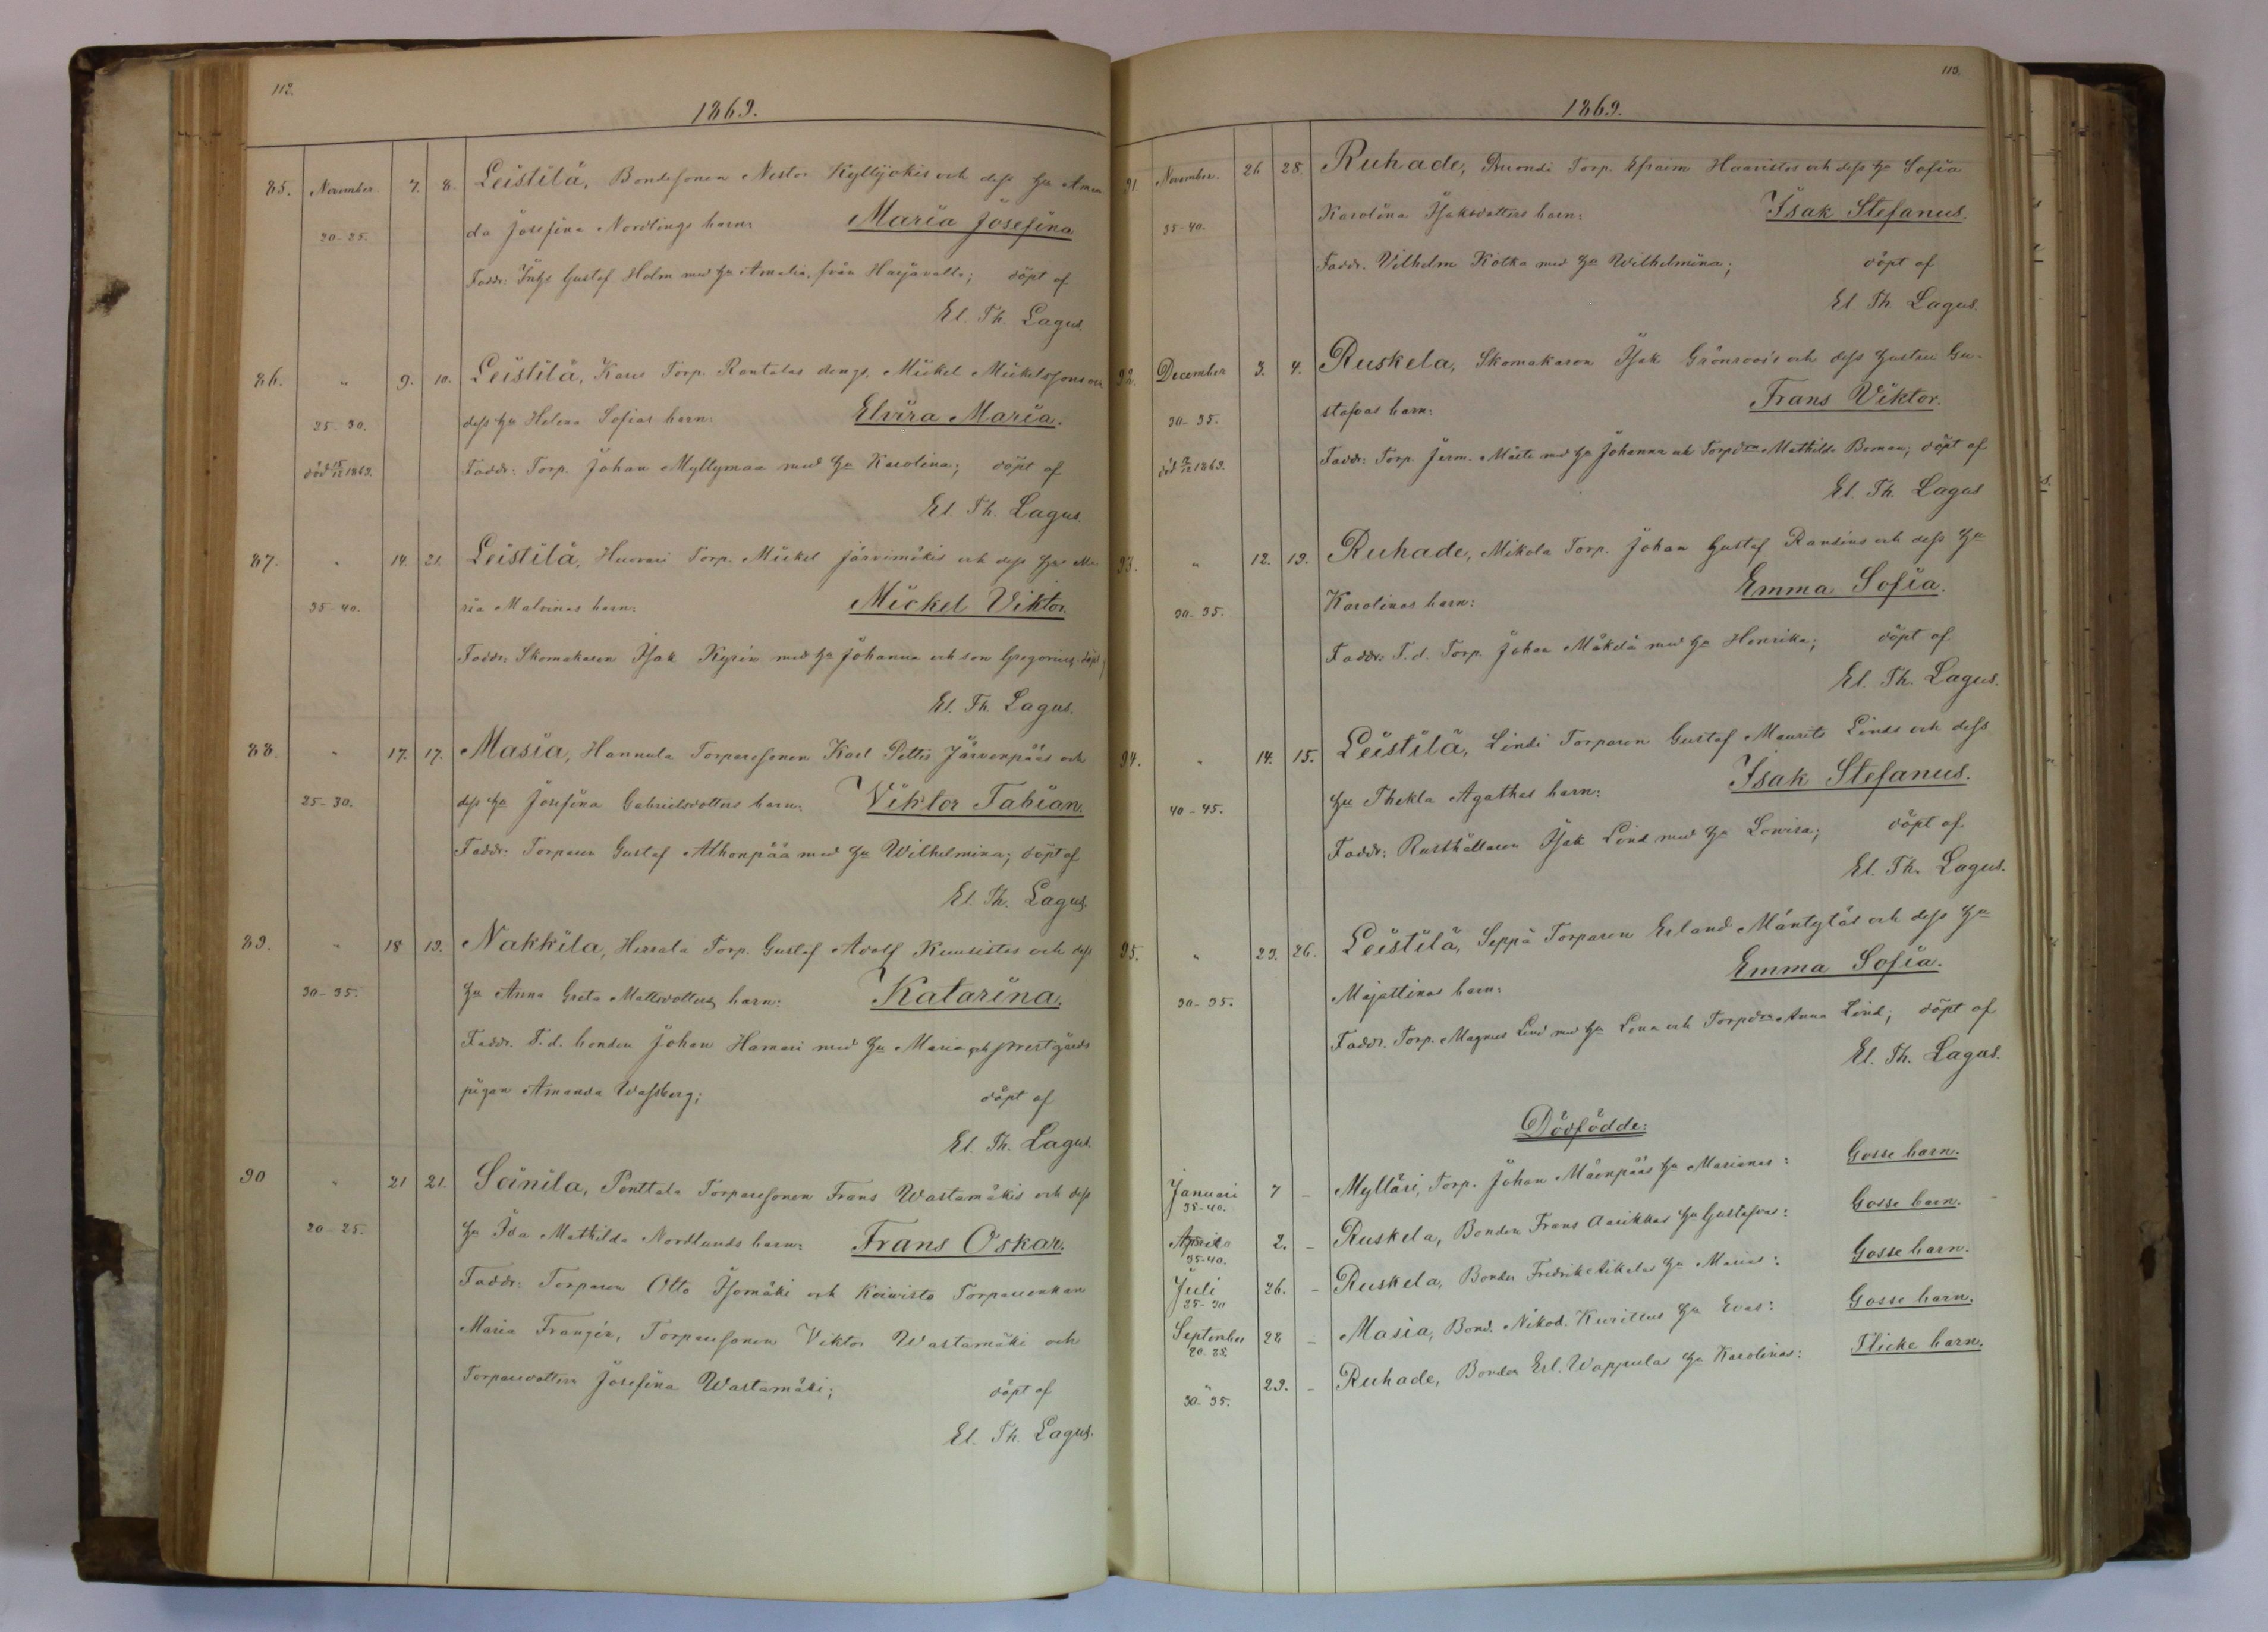 112.
1869.
85. November 7. 8. Leistilä, Bondesonen Nestor Kyllijokis och dess hu Aman
30-25. da Josefina Nordlings barn: Maria Josefina
Faddr: Gustaf Holm med hu Amalia, från Harjavalla; döpt af
El. Th. Lagus.
86. " 9. 10. Leistilä, Torp. Rantalas drengs. Mickel Mickelssons och
25-30. dess hu Helena Sofias barn: Elvira Maria.
död 15/12 1869. Faddr: Torp. Johan Myllymaa med hu Karolina; döpt af
El. Th. Lagus.
87. " 14. 21. Leistilä, Huovari Torp. Mickel Järvimäkis och dess hu Ma
35-40. ria Malvinas barn: Mickel Viktor.
Faddr: Skomakaren Isak Kyrén med hu Johanna och son Gregorius, döpt af
El. Th. Lagus.
88. " 17. 17. Masia, Hannula Torparesonen Karl Järvenpääs och
25-30. dess hu Josefina Gabrielsdotters barn: Viktor Fabian.
Faddr: Torparen Gustaf Alhonpää med hu Wilhelmina; döpt af
El. Th. Lagus.
89. " 18 19. Nakkila, Herrala Torp. Gustaf Adolf Kuusistos och dess
30-35. hu Anna Greta Mattsdotters barn: Katarina.
Faddr. F.d. bonden Johan Hamari med hu Maria och prestgårds
pigan Amanda Wassberg; döpt af
El. Th. Lagus.
90 " 21 21. Soinila, Penttala Torparesonen Frans Wastamäkis och dess
20-25. hu Ida Mathilda Nordlunds barn: Frans Oskar.
Faddr: Torparen Otto Isomäki och Koivisto Torpareenkan
Maria Franzén, Torparesonen Viktor Wastamäki och
Torparedottren Josefina Wastamäki; döpt af
El. Th. Lagus.
113.
1869.
91. November. 26 28. Ruhade, Torp. Efraim Haavistos och dess hu Sofia
35-40. Karolina Isaksdotters barn: Isak Stefanus.
Faddr. Vilhelm Kotka med hu Wilhelmina; döpt af
El. Th. Lagus.
92. December 3. 4. Ruskela, Skomakaren Isak Grönroos's och dess hustru Gu-
30-35. stafvas barn: Frans Viktor.
död 1869. Faddr: Torp. Jerm. med hu Johanna och Torpdrn Mathilda Boman; döpt af
El. Th. Lagus
93. " 12. 19. Ruhade, Mikola Torp. Johan Gustaf Ransins och dess hu
30-35. Karolinas barn: Emma Sofia.
Faddr: F.d. Torp. Johan Mäkelä med hu Henrika; döpt af
El. Th. Lagus.
94. " 14. 15. Leistilä, Lindi Torparen Gustaf Maurits Linds och dess
40-45. hu Thekla Agathas barn: Isak Stefanus.
Faddr: Rusthållaren Isak Lind med hu Lowisa; döpt af
El. Th. Lagus.
95. " 23. 26. Leistilä, Seppä Torparen Erland Mäntyläs och dess hu
30-35. Majastinas barn: Emma Sofia.
Faddr. Torp. Magnus Lind med hu Lena och Torpdrn Anna Lind; döpt af
El. Th. Lagus.
Dödfödde:
Januari 7 - Mylläri, Torp. Johan Mäenpääs hu Marianas: Gosse barn.
35-40.
April 2. - Ruskela, Bonden Frans Aarikkas hu Gustafvas: Gosse barn.
35-40.
Juli 26. - Ruskela, Bonden Fredrik Eikelas hu Marias: Gosse barn.
25-30
September 28 - Masia, Bond. Nikod. Kurittus hu Evas: Gosse barn.
20-25
" 29. - Ruhade, Bonden Erl. Wappulas hu Karolinas: Flicke barn.
30-35.